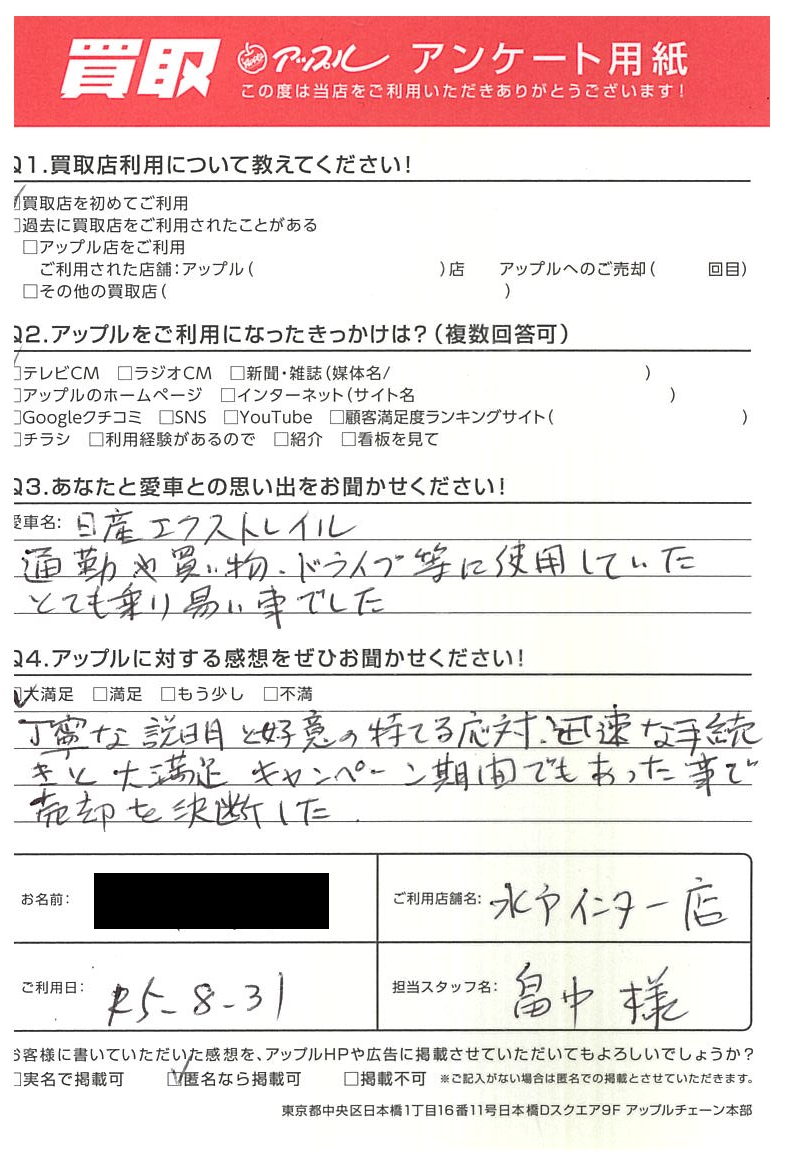 買取 アップル アンケート用紙
この度は当店をご利用いただきありがとうございます!
Q1.買取店利用について教えてください!
☑買取店を初めてご利用
□過去に買取店をご利用されたことがある
□アップル店をご利用
ご利用された店舗:アップル( )店 アップルへのご売却( 回目)
□その他の買取店( )
Q2.アップルをご利用になったきっかけは?(複数回答可)
☑テレビCM □ラジオCM □新聞・雑誌(媒体名/ )
□アップルのホームページ □インターネット(サイト名 )
□Googleクチコミ □SNS □YouTube □顧客満足度ランキングサイト( )
□チラシ □利用経験があるので □紹介 □看板を見て
Q3.あなたと愛車との思い出をお聞かせください!
愛車名: 日産エクストレイル
通勤や買い物、ドライブ等に使用していた
とても乗り易い車でした
Q4.アップルに対する感想をぜひお聞かせください!
☑大満足 □満足 □もう少し □不満
丁寧な説明と好意の持てる応対、迅速な手続
きと大満足 キャンペーン期間でもあった事で
売却を決断した.
お名前: ご利用店舗名: 水戸インター店
ご利用日: R5-8-31 担当スタッフ名: 畠中 様
お客様に書いていただいた感想を、アップルHPや広告に掲載させていただいてもよろしいでしょうか?
□実名で掲載可 ☑匿名なら掲載可 □掲載不可 ※ご記入がない場合は匿名での掲載とさせていただきます。
東京都中央区日本橋1丁目16番11号日本橋Dスクエア9F アップルチェーン本部